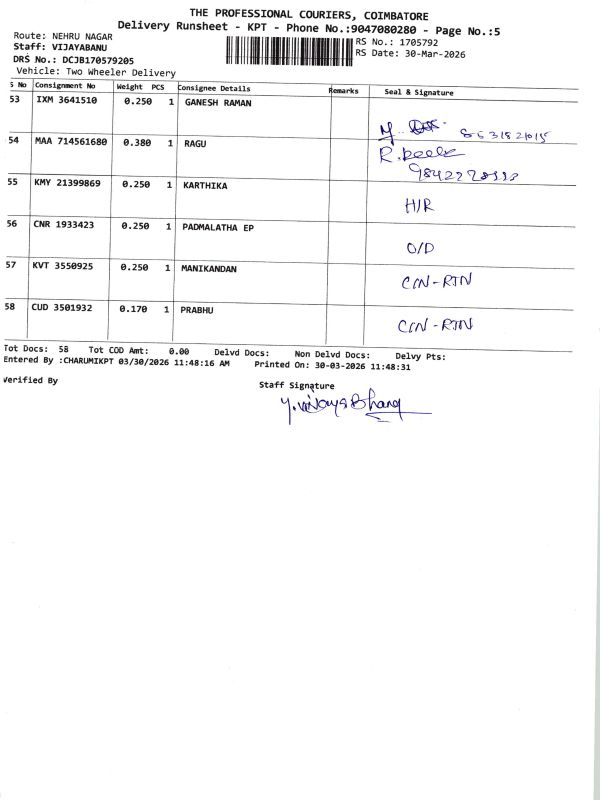 THE PROFESSIONAL COURIERS, COIMBATORE
Delivery Runsheet - KPT - Phone No.:9047080280 - Page No.:5
Route: NEHRU NAGAR
RS No.: 1705792
Staff: VIJAYABANU
RS Date: 30-Mar-2026
DRS No.: DCJB170579205
Vehicle: Two Wheeler Delivery
S No Consignment No Weight PCS Consignee Details Remarks Seal & Signature
53 IXM 3641510 0.250 1 GANESH RAMAN
54 MAA 714561680 0.380 1 RAGU
55 KMY 21399869 0.250 1 KARTHIKA H/R
56 CNR 1933423 0.250 1 PADMALATHA EP O/D
57 KVT 3550925 0.250 1 MANIKANDAN C/N-RTN
58 CUD 3501932 0.170 1 PRABHU C/N-RTN
Tot Docs: 58 Tot COD Amt: 0.00 Delvd Docs: Non Delvd Docs: Delvy Pts:
Entered By :CHARUMIKPT 03/30/2026 11:48:16 AM Printed On: 30-03-2026 11:48:31
Verified By
Staff Signature